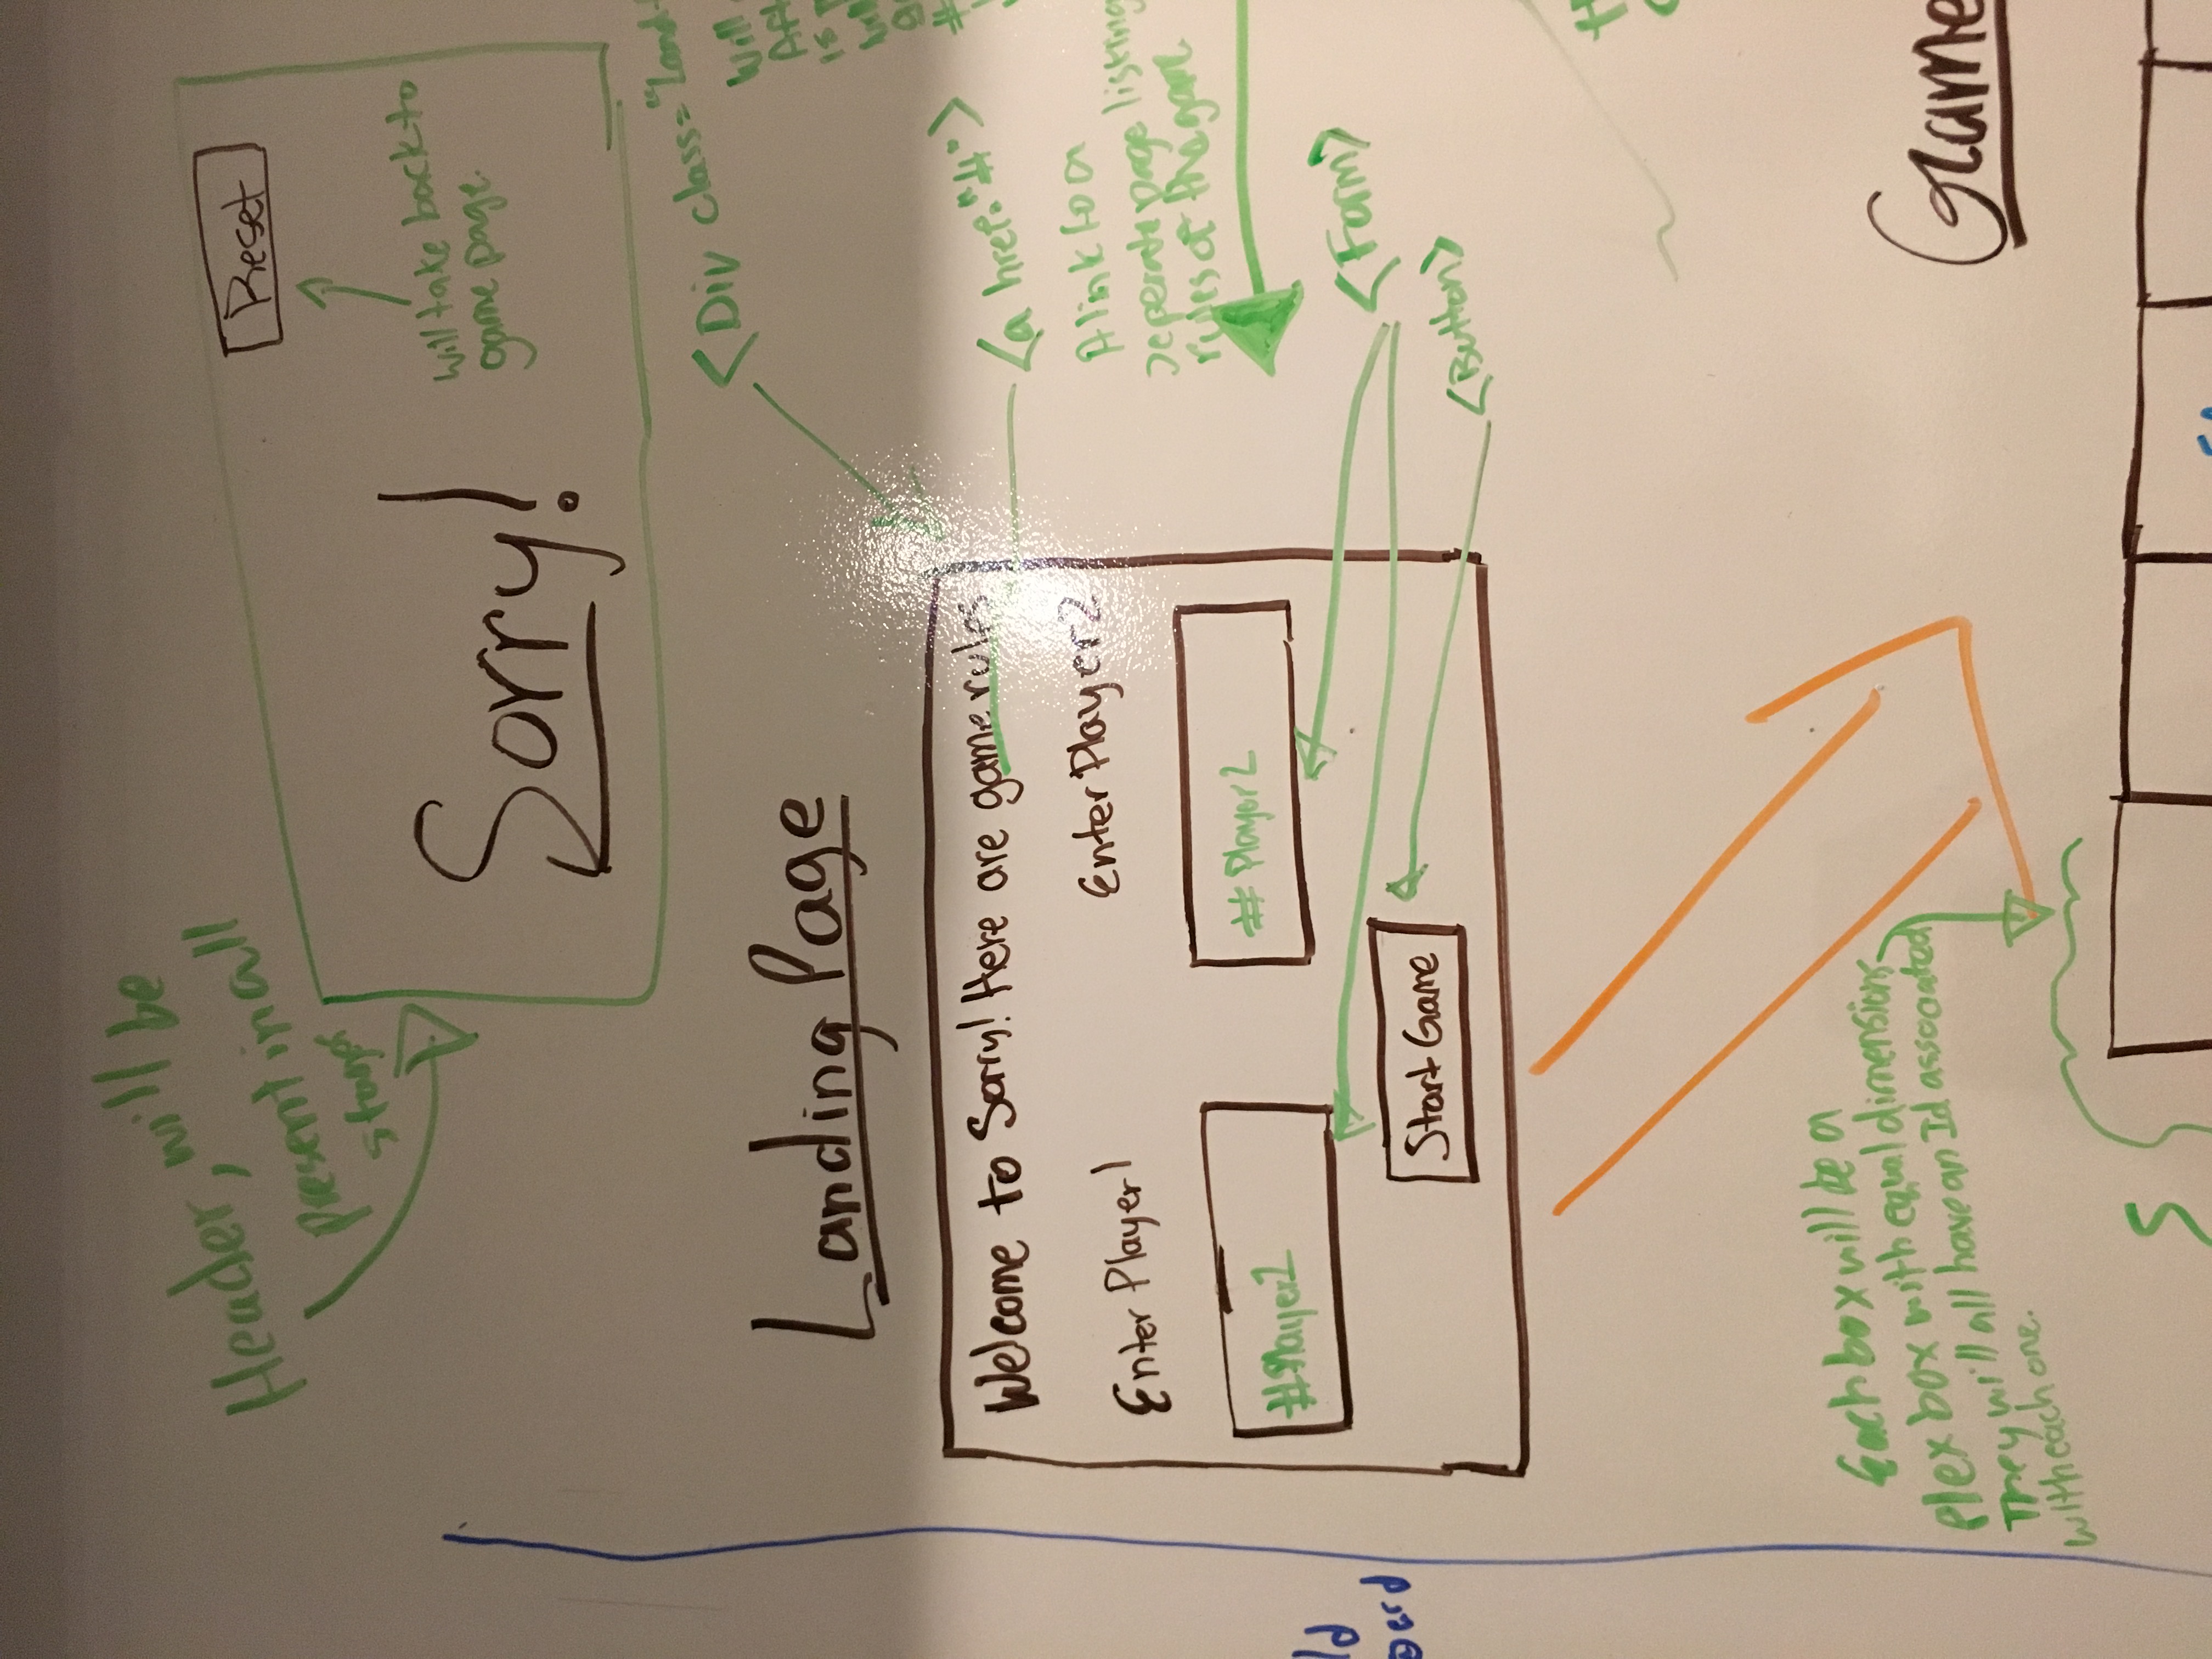 Header, will be
present in all
stages
Reset
will take back to
game page.
Sorry!
<Div class="Land-
Will
Landing Page
Welcome to Sorry! Here are game rules
<a href="#">
A link to a
seperate page listing
rules of the game
Enter Player1
Enter Player2
#Player1
#Player2
<Form>
Start Game
<Button>
Each box will be a
flex box with equal dimensions
They will all have an Id associated
with each one.
Game
5